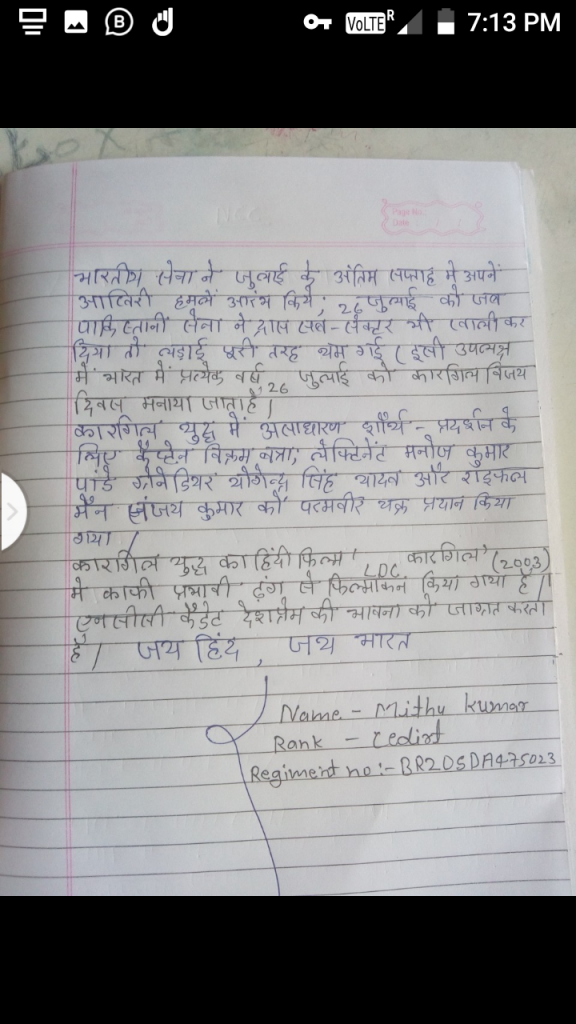 VoLTE R 7:13 PM
Page No.
Date
भारतीय सेना ने जुलाई के अंतिम सप्ताह में अपने
आखिरी हमलें आरंभ किये; 26 जुलाई को जब
पाकिस्तानी सेना ने द्रास सब-सेक्टर भी खाली कर
दिया तो लड़ाई पूरी तरह थम गई (इसी उपलक्ष
में भारत में प्रत्येक वर्ष 26 जुलाई को कारगिल विजय
दिवस मनाया जाता है।
कारगिल युद्ध में असाधारण शौर्य - प्रदर्शन के
लिए कैप्टेन विक्रम बत्रा, लेफ्टिनेंट मनोज कुमार
पांडे ग्रेनेडियर योगेन्द्र सिंह यादव और राइफल
मैन संजय कुमार को परमवीर चक्र प्रदान किया
गया।
कारगिल युद्ध का हिंदी फिल्म 'LOC कारगिल' (2003)
में काफी प्रभावी ढ़ंग से फिल्मांकन किया गया है।
एनसीसी कैडेट देशप्रेम की भावना को जाग्रत करता
है। जय हिंद, जय भारत
Name - Mithu kumar
Rank -
Regiment no:- BR20SDA475023